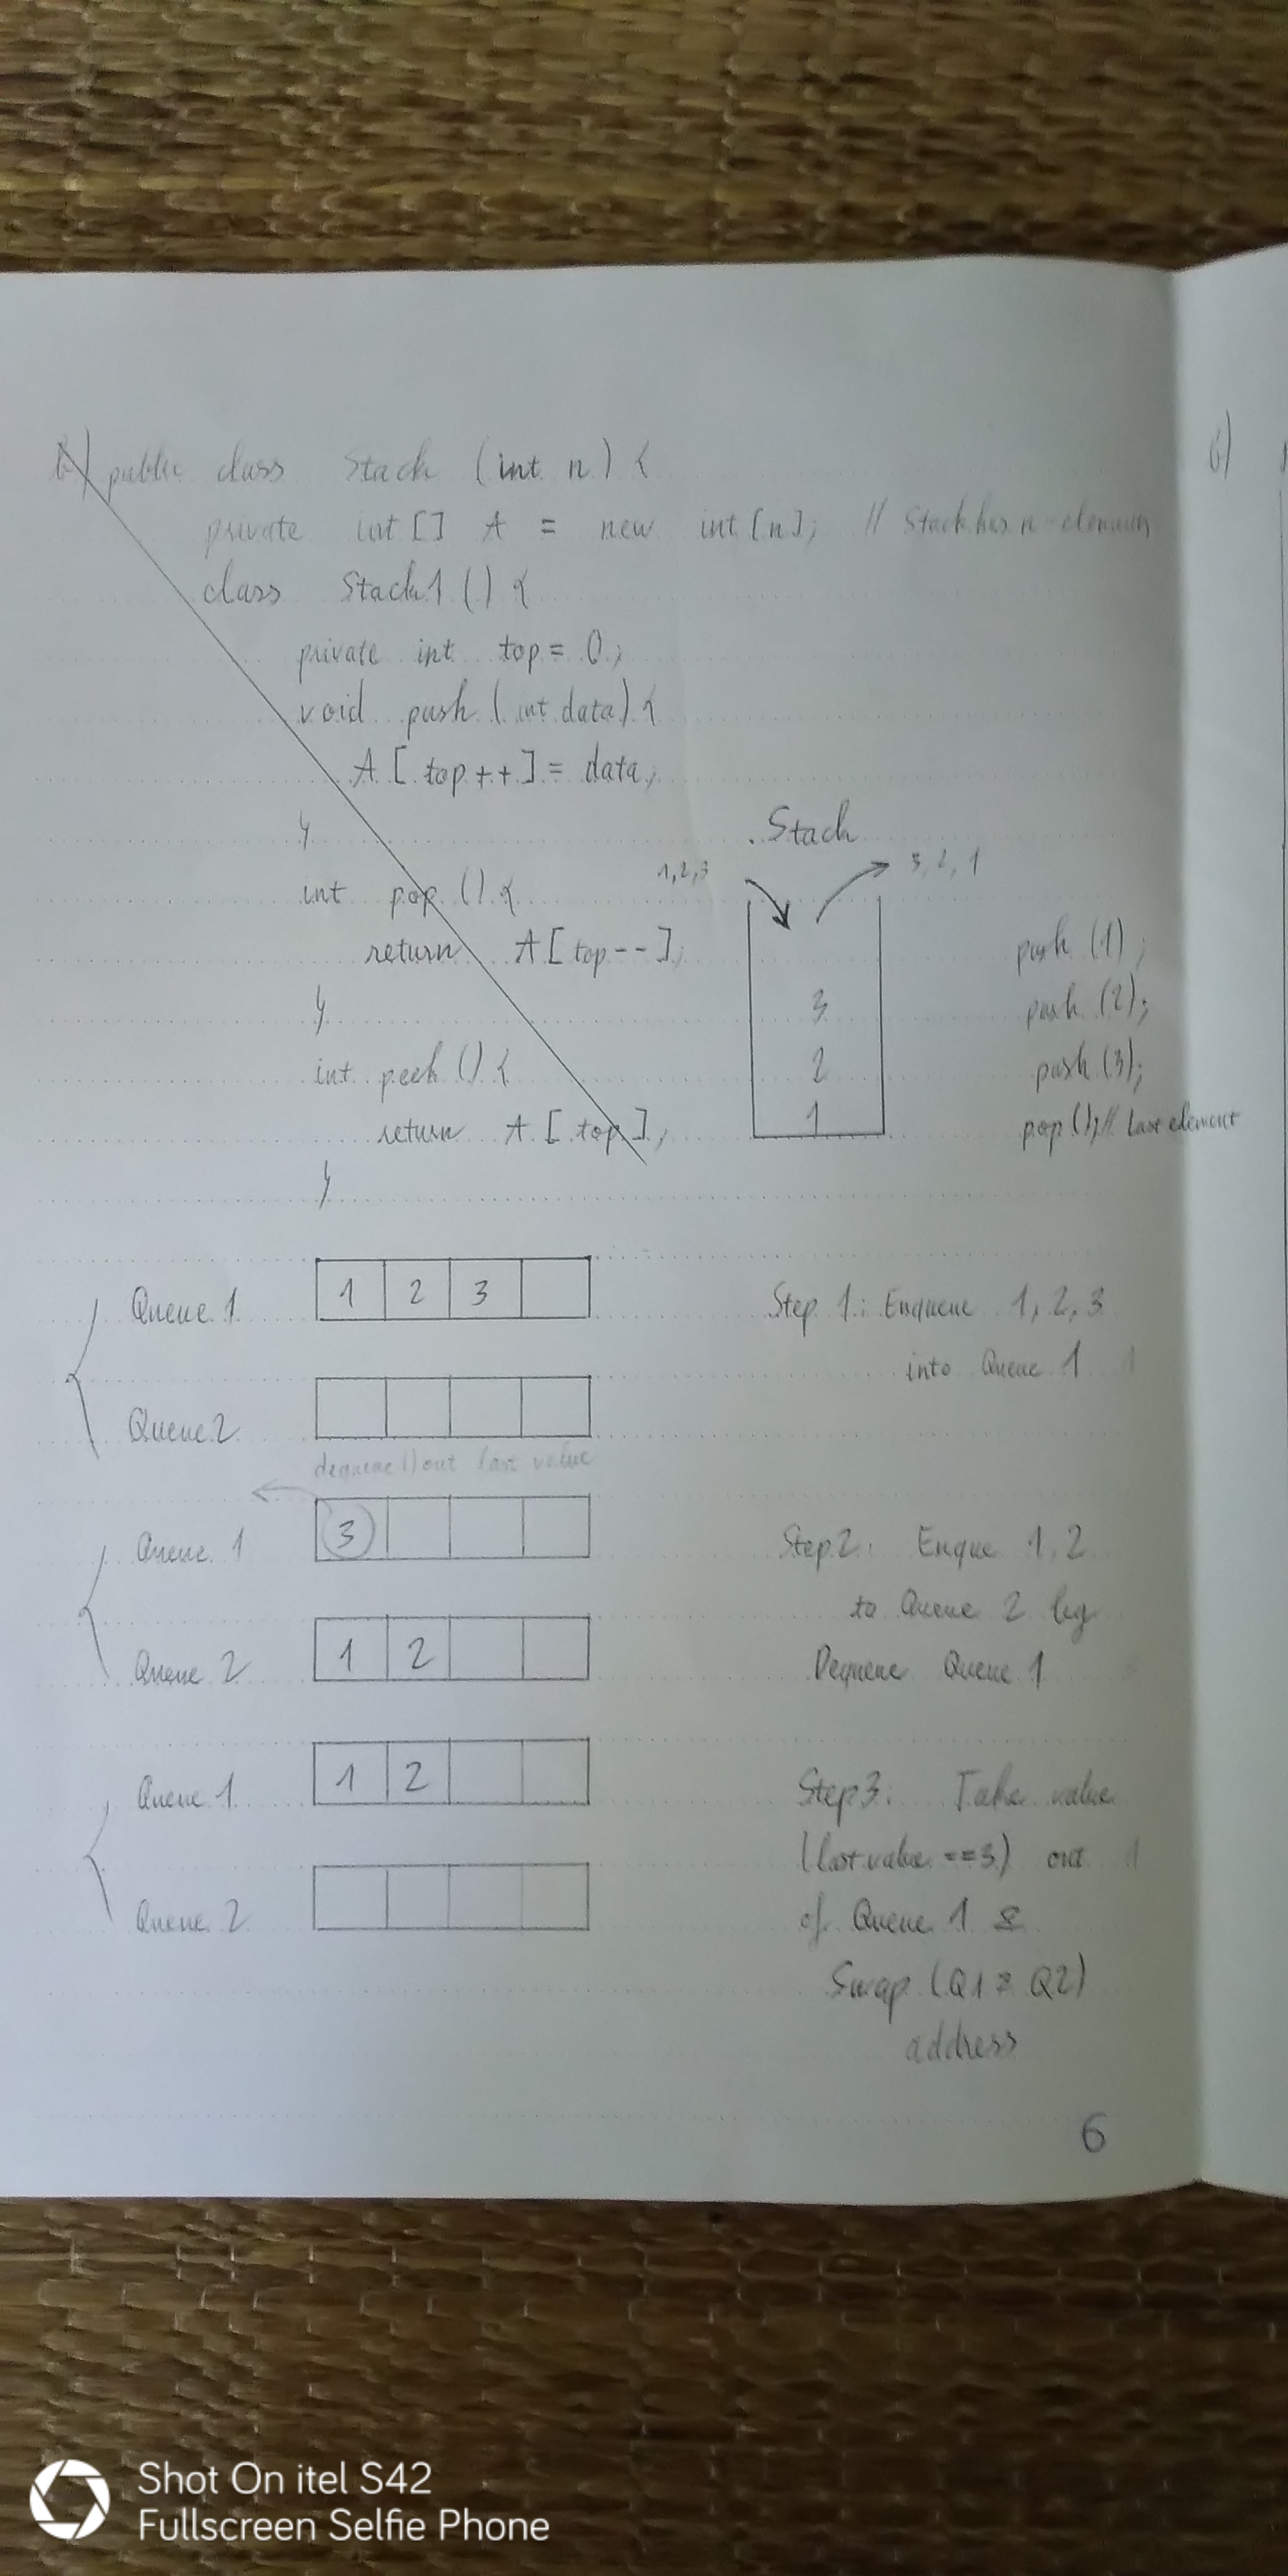 b) public class Stack (int n) {
private int [] A = new int [n]; // Stack has n-element
class Stack1 () {
private int top = 0;
void push ( int data) {
A [ top ++ ] = data;
}
int pop () {
return A [ top -- ];
}
int peek () {
return A [ top ];
}
Stack
1,2,3
3, 2, 1
3
2
1
push (1);
push (2);
push (3);
pop (); // Last element
Queue 1
1 2 3
Queue 2
Step 1: Enqueue 1, 2, 3
into Queue 1
dequeue () out last value
Queue 1
3
Queue 2
1 2
Step 2: Enque 1, 2
to Queue 2 by
Dequeue Queue 1
Queue 1
1 2
Queue 2
Step 3: Take value
(last value == 3) out
of Queue 1 &
Swap (Q1 & Q2)
address
6
b)
Shot On itel S42
Fullscreen Selfie Phone